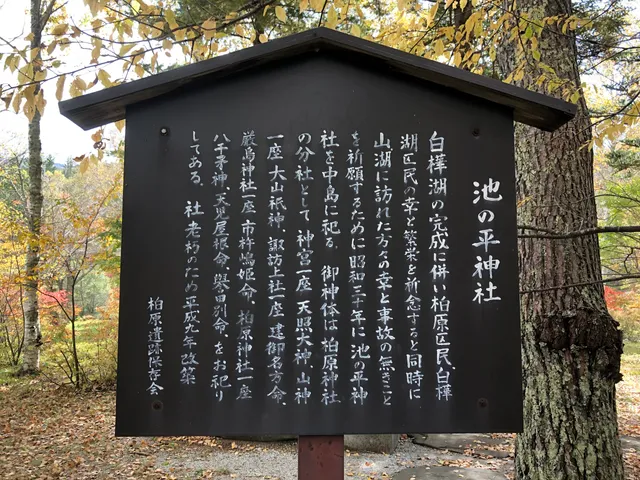 池の平神社
白樺湖の完成に併い柏原区民、白樺
湖区民の幸と繁栄を祈念すると同時に
山湖に訪れた方々の幸と事故の無きこと
を祈願するために昭和三十年に池の平神
社を中島に祀る。御神体は柏原神社
の分社として、神宮一座 天照大神、山神
一座 大山祇神、諏訪上社一座 建御名方命、
厳島神社一座 市杵嶋姫命、柏原神社一座
八千矛神、天児屋根命、誉田別命、をお祀り
してある。社老朽のため平成九年改築
柏原遺跡保存会